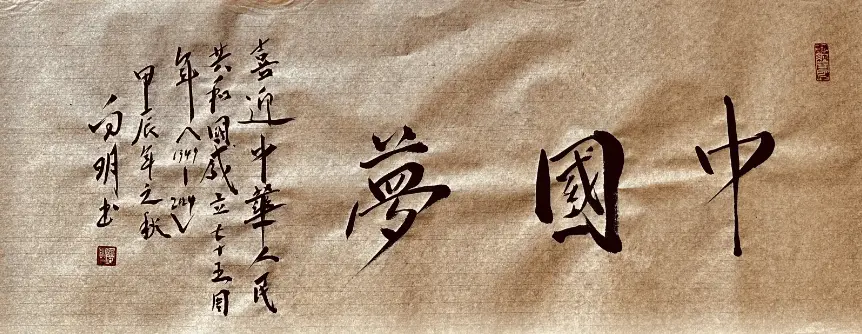 中國夢
喜迎中華人民
共和國成立七十五周
年(1949-2024)
甲辰年之秋
向明书